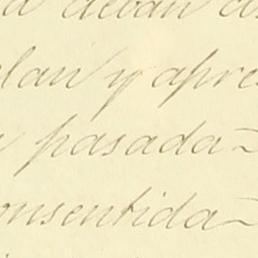 deban
lan y apre
pasada-
onsentida-